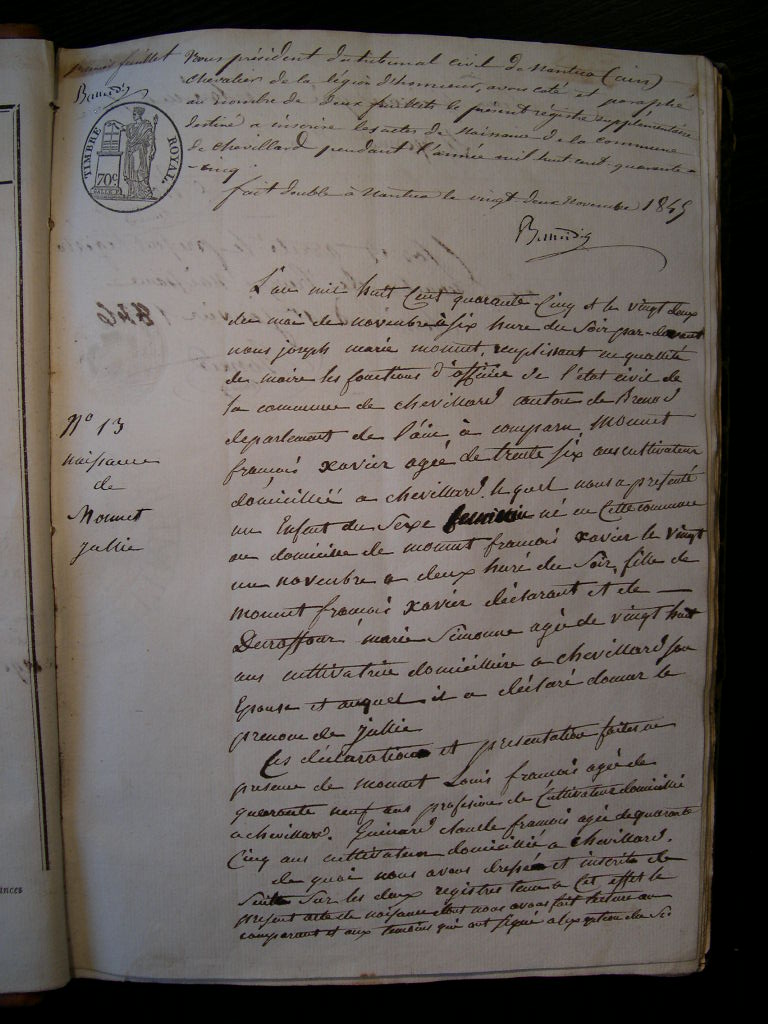 premier feuillet
Nous président du tribunal civil de Nantua (ain)
chevalier de la légion d'honneur, avons coté et paraphé
au nombre de deux feuillets le présent régistre supplémentaire
destiné a inscrire les actes de Naissance de la commune
de chevillard pendant l'année mil huit cent quarante
cinq.
fait double à Nantua le vingt deux Novembre 1845
TIMBRE ROYAL
70c
L'an mil huit Cent quarante Cinq et le vingt deux
du moi de novembre à six hure du Soir par-devant
nous joseph marie monnet, remplissant en qualité
de maire les fonctions d'officie de l'état civil de
la commune de chevillard canton de Brenod
departement de l'ain à comparu Monnet
françois xavier agée de trente six ans cultivateur
domicilliée a chevillard. lequel nous a présenté
un Enfant du Sexe feminin né en Cette commune
au domicile de monnet françois xavier le vingt
un novembre a deux huré du Soir, fille de
monnet françois xavier déclarant et de
marie Simonne agée de vingt huit
ans cultivatrice domicilliée a chevillard son
Epouse et auquel il a déclaré donner le
prenom de jullie
Ces déclaration et presentation faites en
presence de monnet Louis françois agée de
quarante neuf ans profesione de Cultivateur domicillié
a chevillard. Guinard claude françois agée de quarante
Cinq ans cultivateur domicillié a chevillard.
de quoi nous avons dressée et inscrite de
Suitte Sur les deux registres tenu a Cet effet le
présent acte de naissance dont nous avons fait lecture au
comparant et aux temoins qui ont signé a lexeption du
N° 13
naissance
de
Monnet
jullie
1846